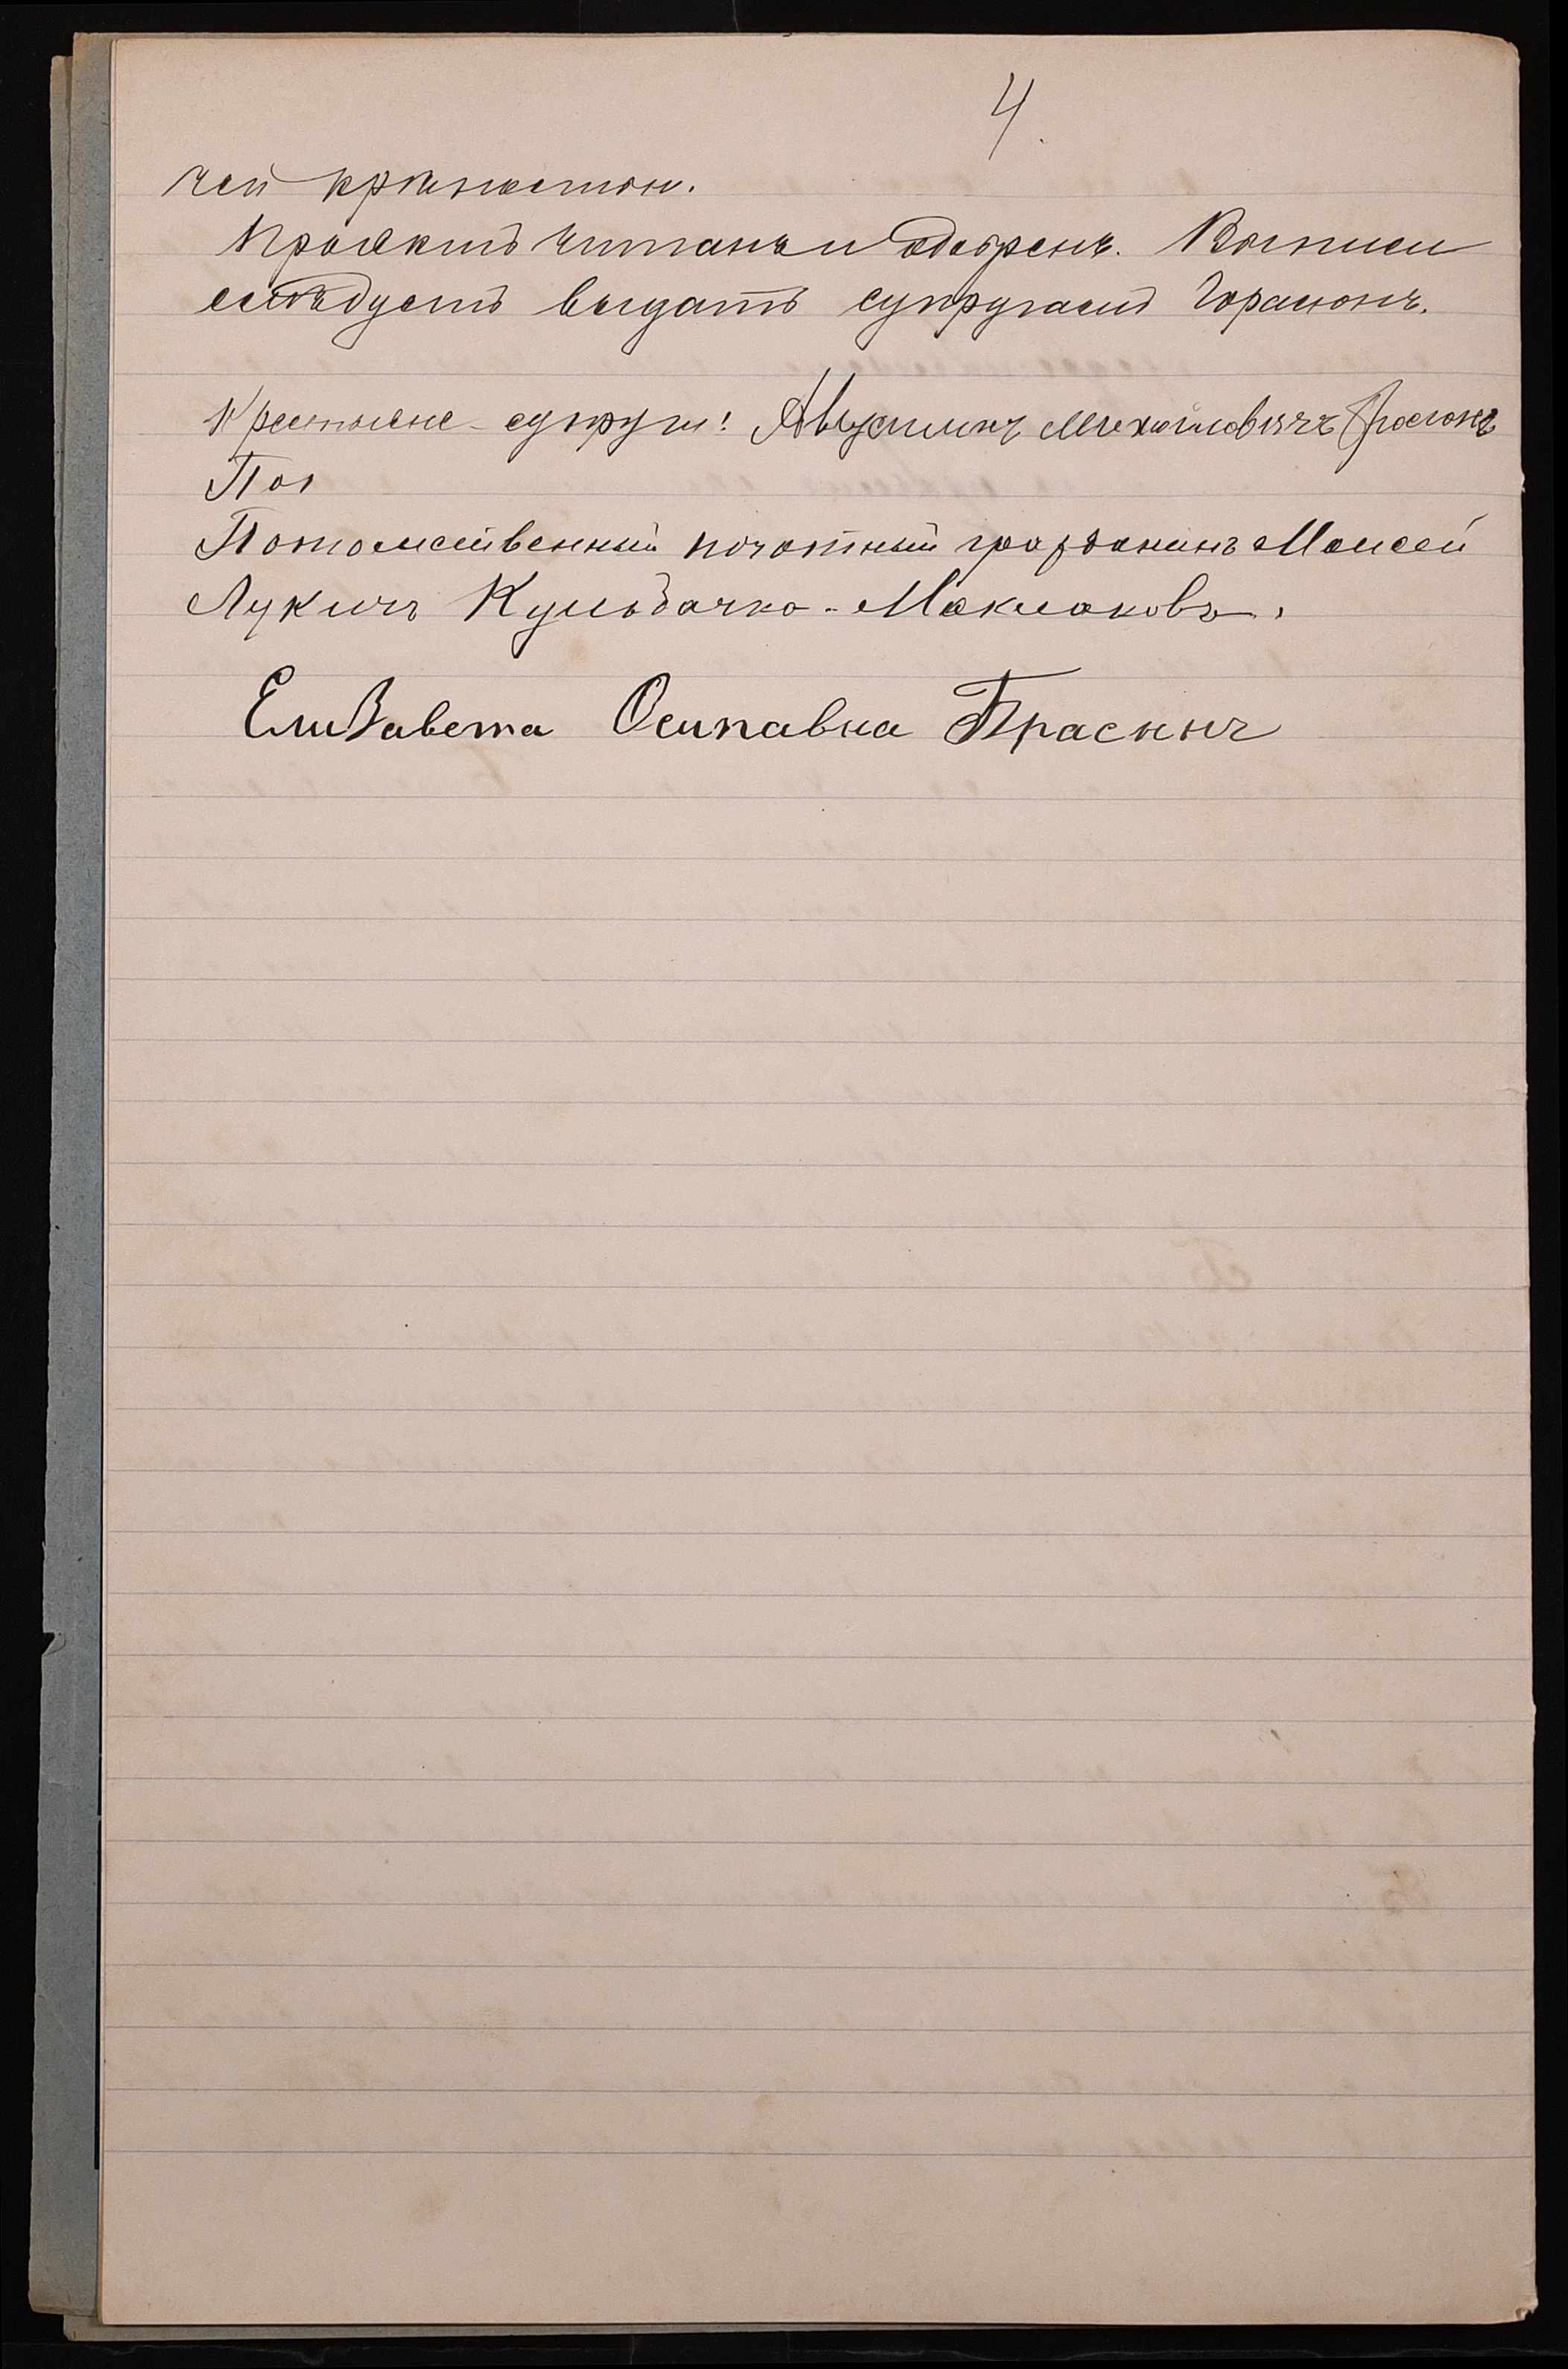 4.
чей крѣпостью.
Проектъ читанъ и одобренъ. Выписи
слѣдуетъ выдать супругамъ
Крестьяне-супруги: Августинъ Михайловичъ
Пот
Потомственный почотный гражданинъ Моисей
Лукичъ Кульбачко-Маклаковъ.
Елизавета Осипавна Прасюнъ